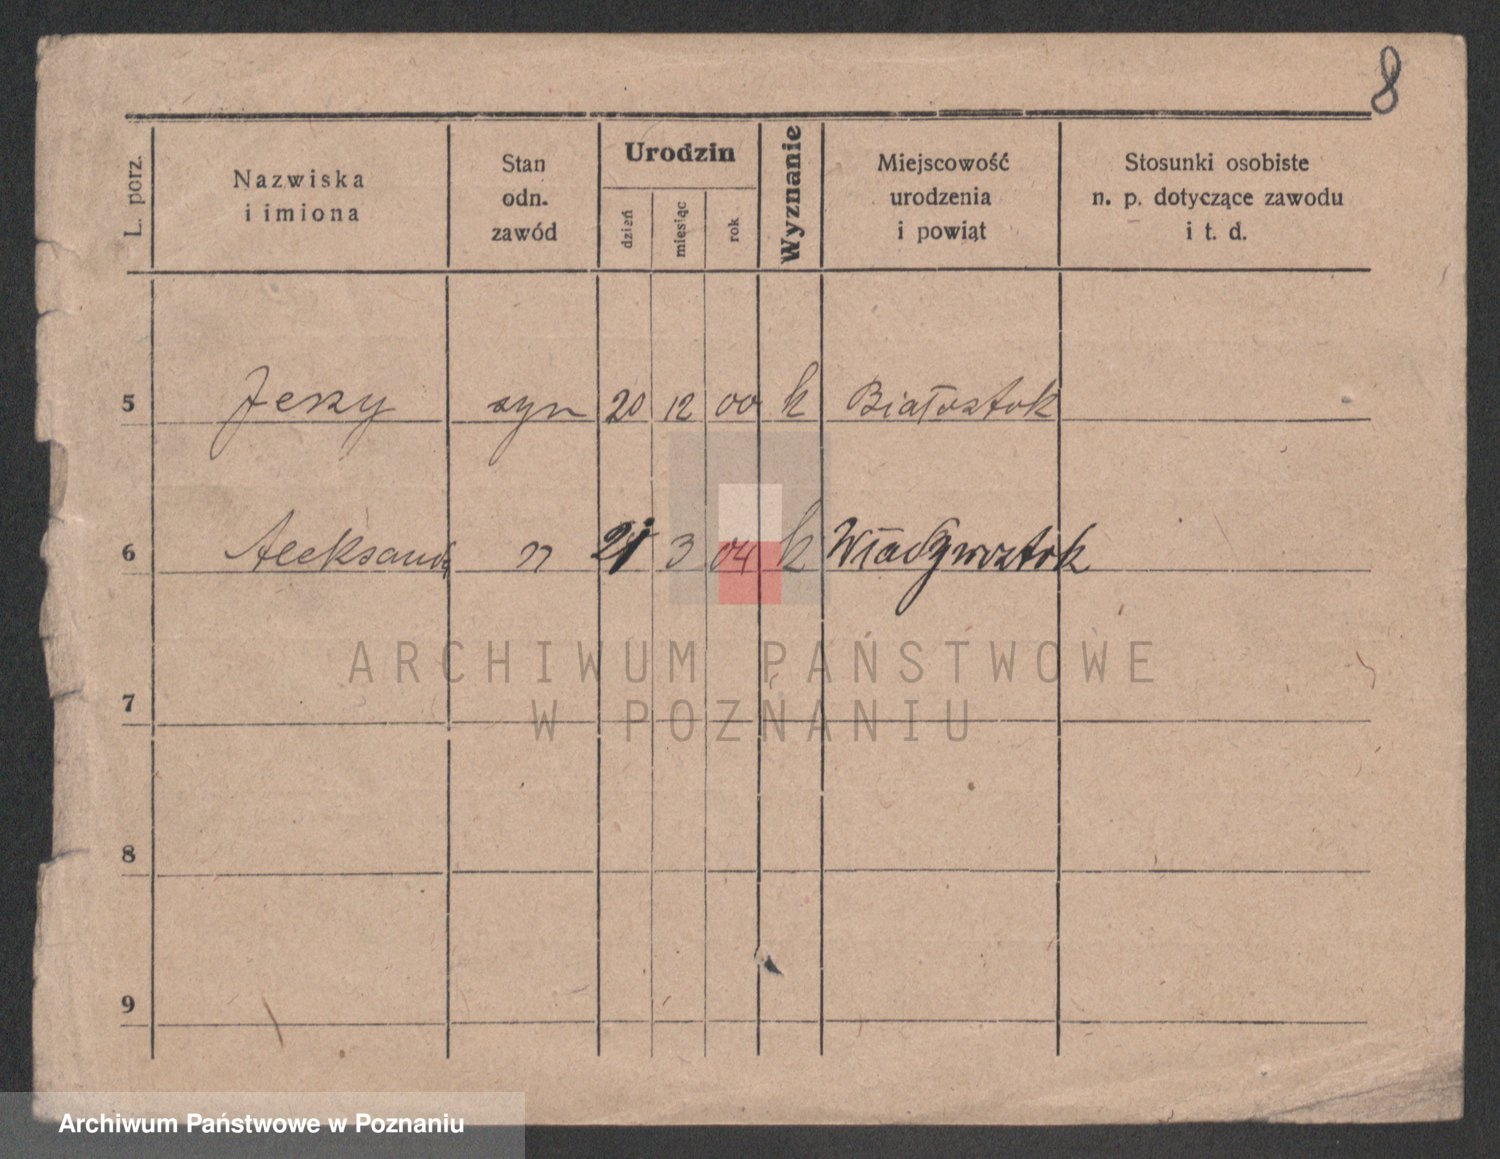 8
L. porz.
Nazwiska
i imiona
Stan
odn.
zawód
Urodzin
dzień
miesiąc
rok
Wyznanie
Miejscowość
urodzenia
i powiąt
Stosunki osobiste
n. p. dotyczące zawodu
i t. d.
5 Jerzy syn 20 12 00 k Białostok
6 Aleksand 04 k Władywostok
ARCHIWUM PAŃSTWOWE
W POZNANIU
7
8
9
Archiwum Państwowe w Poznaniu